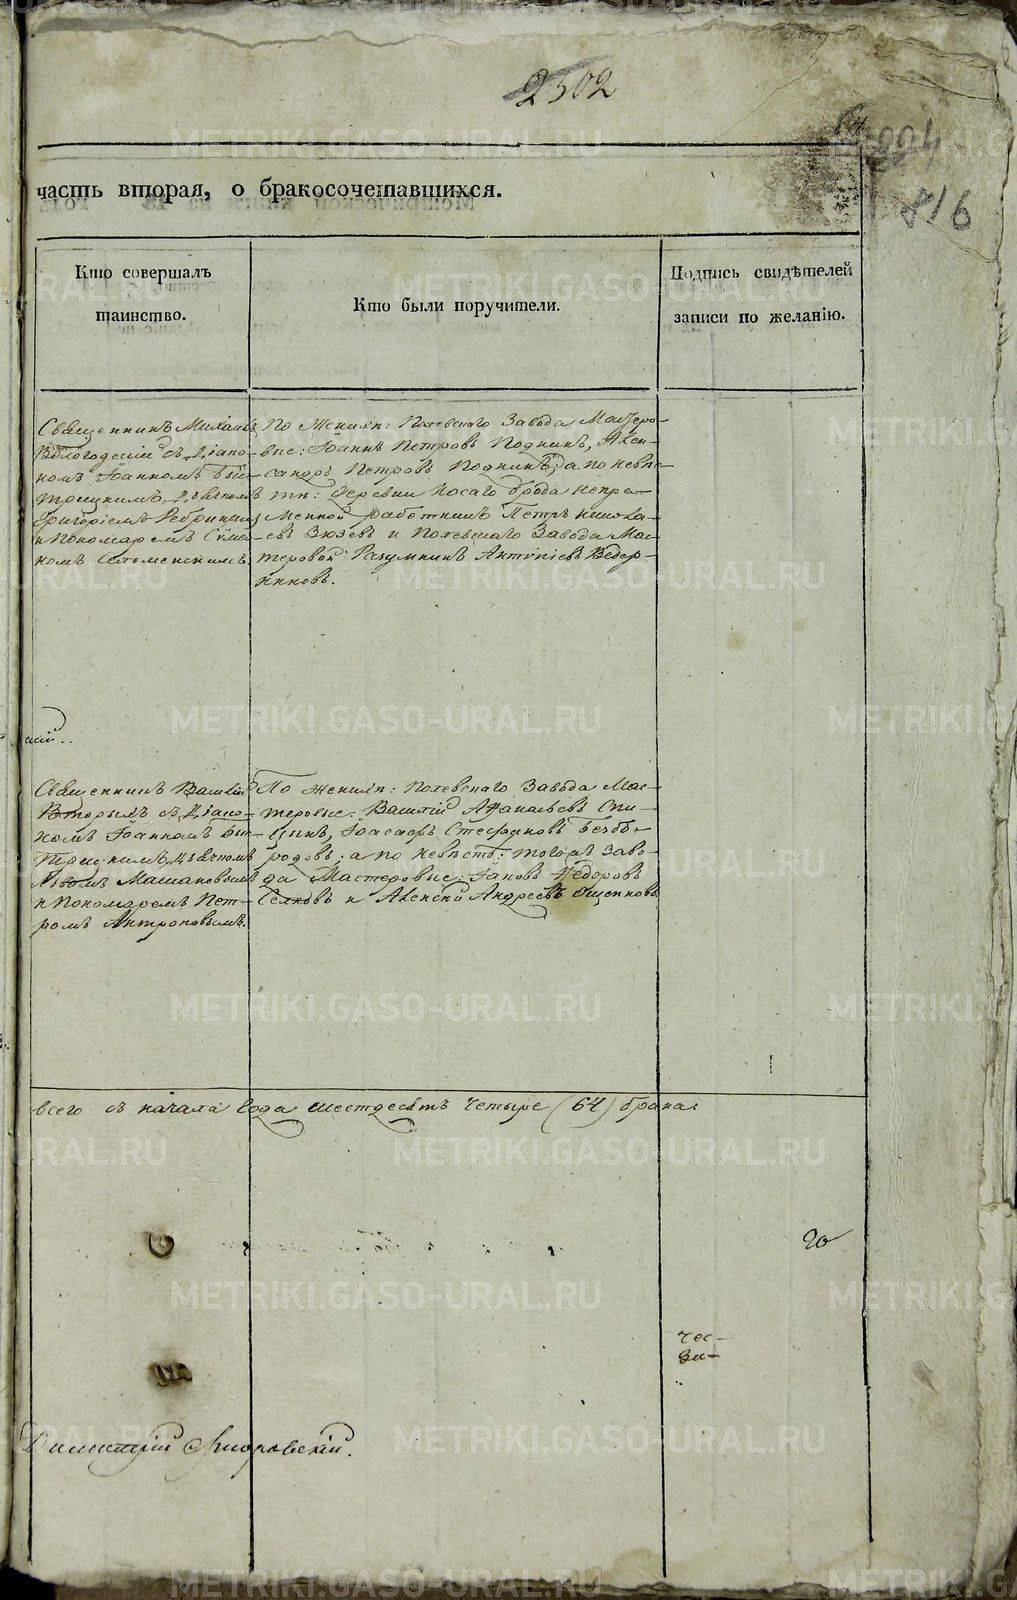 2502
64
224
816
часть вторая, о бракосочетавшихся.
Кто совершалъ
таинство.
Кто были поручители.
Подпись свидѣтелей
записи по желанію.
Священникъ Михаилъ
Вологодскій съ Діако-
номъ Іоанномъ
Григоріемъ
и Пономаремъ
комъ
По женихѣ: Полевскаго Завода Мастеро-
вые: Іоаннъ Петровъ Поднинъ, Алек-
сандръ Петровъ Поднинъ; а по невѣс-
тѣ: Деревни Косаго брода непре-
менной работникъ Петръ Никола-
евъ Зюзевъ и Полевскаго Завода Мас-
теровой Разумникъ Антоніевъ Ведер-
никовъ.
Священникъ Василій
Вторымъ съ Діако-
номъ Іоанномъ
Львомъ
и Пономаремъ Пет-
ромъ Антроповымъ.
По женихѣ: Полевскаго Завода Мас-
теровые: Василій Афанасьевъ Спи-
цинъ, Іоасафъ Стефановъ Безбо-
родовъ; а по невѣстѣ: тогожъ Заво-
да Мастеровые: Іаковъ Ѳедоровъ
и Алексѣй Андреевъ
всего съ начала года шестдесятъ четыре (64) брака.
го
чес-
за-
Димитрій
METRIKI.GASO-URAL.RU